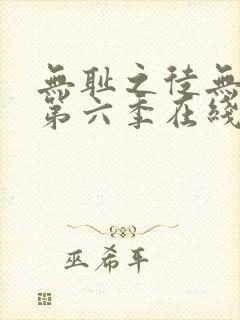 無耻之徒無
第六季在綫
巫希平